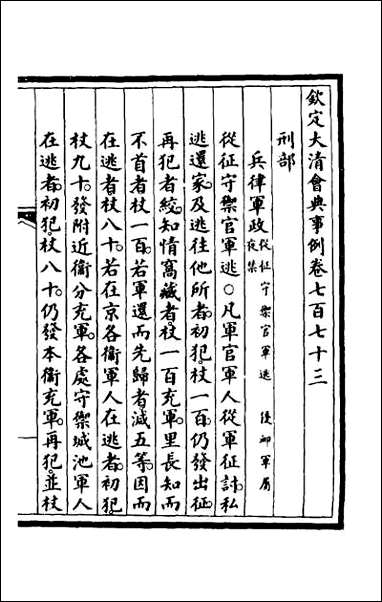 欽定大清會典事例卷七百七十三
刑部
兵律軍政從征守禦官軍逃 優卹軍屬 夜禁
從征守禦官軍逃○凡軍官軍人從軍征討私
逃還家及逃往他所者初犯杖一百仍發出征
再犯者絞知情窩藏者杖一百充軍里長知而
不首者杖一百若軍還而先歸者減五等因而
在逃者杖八十若在京各衞軍人在逃者初犯
杖九十發附近衞分充軍各處守禦城池軍人
在逃者初犯杖八十仍發本衞充軍再犯並杖